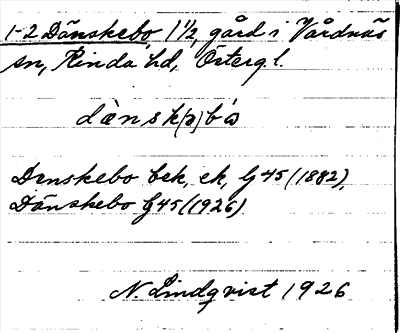 1-2 Dänskebo 1 1/2, gård i Vårdnäs
sn, Kinda hd, Östergl.
dä̀nsk(ə)bo
Denskebo bek, ek, G45 (1882),
Dänskebo G45 (1926)
N. Lindqvist 1926